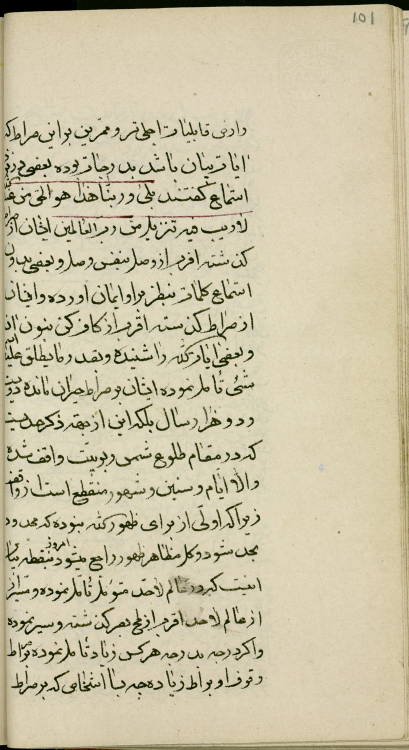 101
وارض قابلیات اجلی تر و ممرین بر این صراط که
ایات بیان باشد بدرجات بوده بعضی در
استماع گفتند بلی و ربنا هذا هو الحق من
لا ریب فیه تنزیل من رب العالمین ایشان از صراط
گذشته اقرب از وصل بنفس وصل و بعضی بدون
استماع کلمات بنظر بر او ایمان اورده و ایشان
از صراط گذشته اقرب از کاف کن بنون ان
و بعضی ایات الله را شنیده و بقدر ما یطلق علیه
شیء تأمل نموده ایشان بر صراط حیران مانده
و دو هزار سال بلکه این از جهة ذکر حد است
که در مقام طلوع شمس ربوبیت واقف شده
والا ایام و سنین و شهور منقطع است از
زیرا که اولی از برای ظهور الله نبوده که محدود
بحد شود و کل مظاهر ظهور راجع میشود بنقطه بیان امروز
اینست که در عالم لا حد متوئل تأمل نموده و
از عالم لا حد اقرب از لمح بصر گذشته و سیر نموده
و اگر درجه بدرجه هر کس زیاد تأمل نموده صراط
و توقف او بر صراط زیاده چه بسا اشخاصی که بر صراط